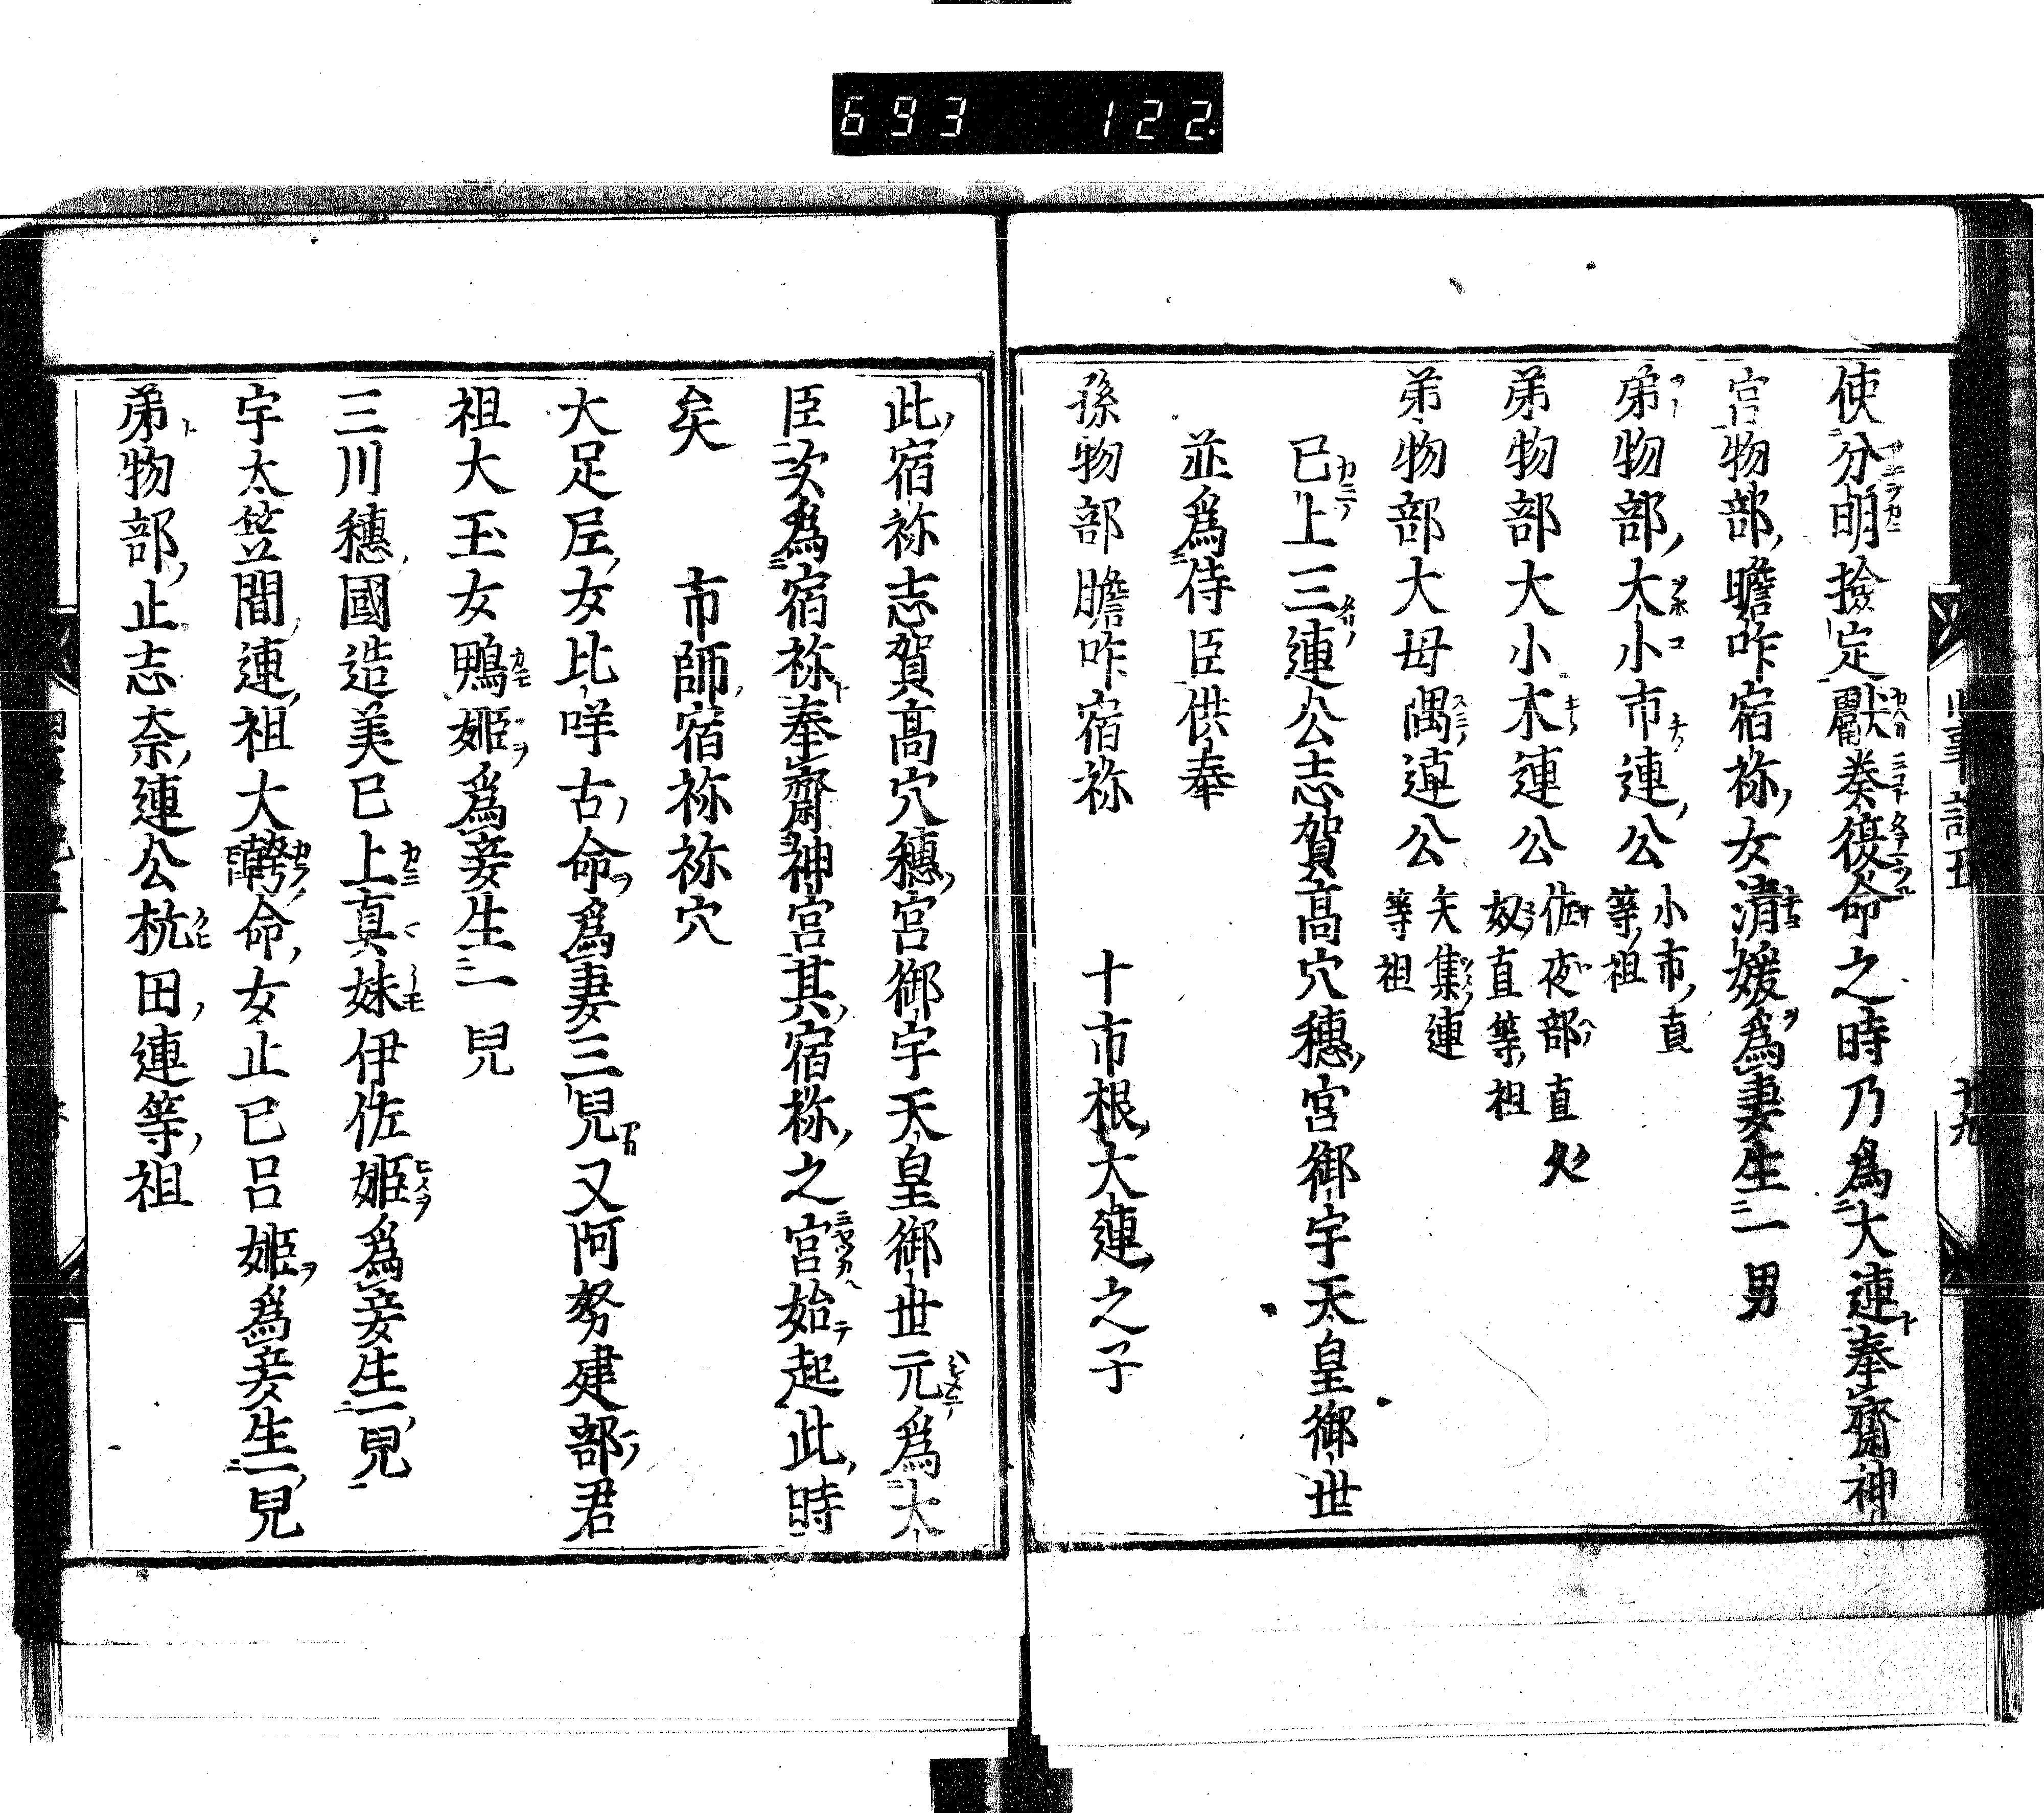 693 122.
使分明撿定獻奏復命之時乃爲大連奉齋神
宮物部膽咋宿祢女清媛爲妻生一男
弟物部大小市連公 小市直
等祖
弟物部大小木連公 佐夜部直久
奴直等祖
弟物部大母隅連公 矢集連
等祖
已上三連公志賀高穴穗宮御宇天皇御世
並爲侍臣供奉
孫物部膽咋宿祢 十市根大連之子
此宿祢志賀高穴穗宮御宇天皇御世元爲大
臣次爲宿祢奉齋神宮其宿祢之官始起此時
矣 市師宿祢祢穴
大足尼女比咩古命爲妻三兒又阿努建部君
祖大玉女鴨姬爲妾生一兒
三川穗國造美已上眞妹伊佐姬爲妾生一兒
宇太笠間連祖大幹命女止已呂姬爲妾生一兒
弟物部止志奈連公杭田連等祖